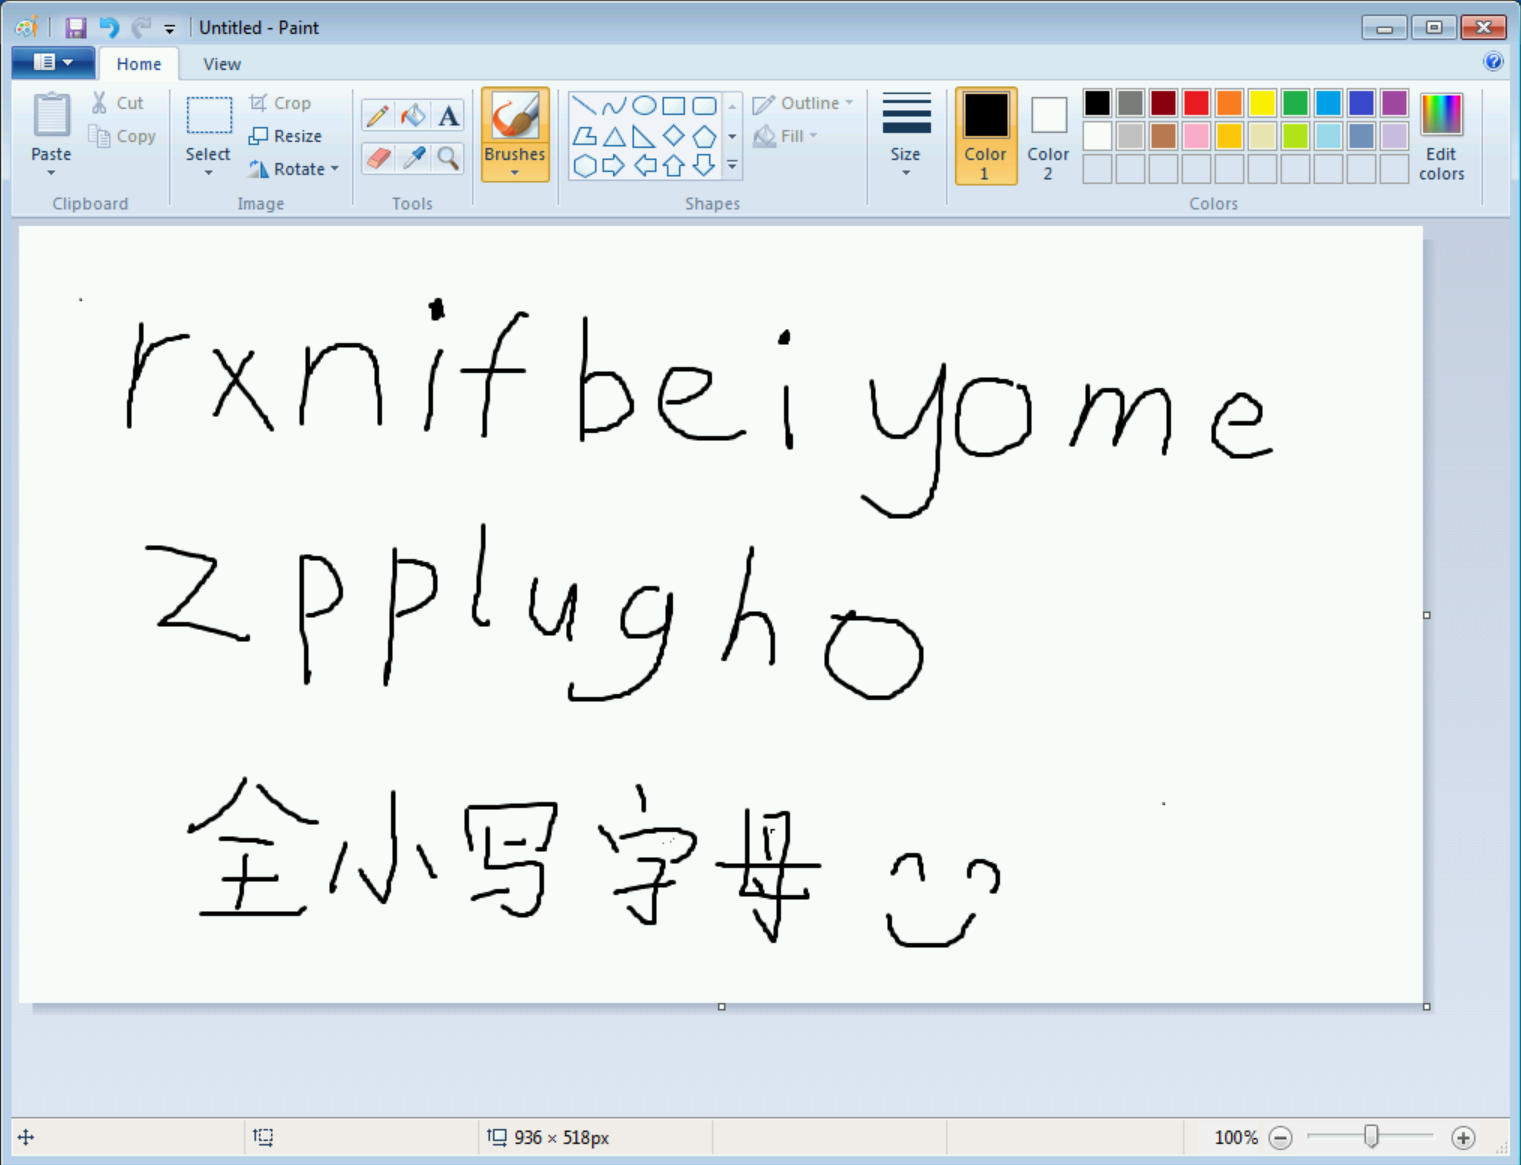 Untitled - Paint
Home View
Paste
Cut
Copy
Clipboard
Select
Crop
Resize
Rotate
Image
Tools
Brushes
Shapes
Outline
Fill
Size
Color 1
Color 2
Edit colors
Colors
rxnifbeiyome
zpplugho
全小写字母
936 × 518px
100%